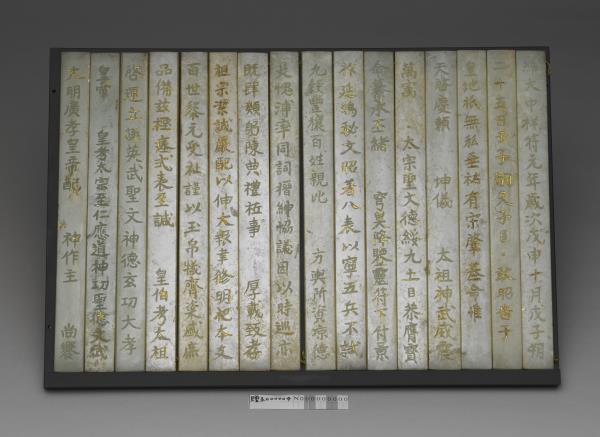 維大中祥符元年歲次戊申十月戊子朔
二十五日壬子嗣天子臣恒敢昭告于
皇地祇無私垂祐有宋肇基命惟
天啓慶賴 坤儀 太祖神武威震
萬寓 太宗聖文德綏九土臣恭膺寶
命纂承丕緒 穹昊降祥靈符下付景
祚延鴻祕文昭著八表以寧五兵不試
九穀豐穰百姓親比 方輿所資涼德
是愧溥率同詞搢紳協議因以時巡亦
既肆類躬陳典禮祗事 厚載致孝
祖宗潔誠嚴配以伸大報聿修明祀本支
百世黎元受祉謹以玉帛犧齊粢盛庶
品備兹禋瘞式表至誠 皇伯考太祖
啓運立極英武聖文神德玄功大孝
皇帝 皇考太宗至仁應道神功聖德文武
大明廣孝皇帝配 神作主 尚饗